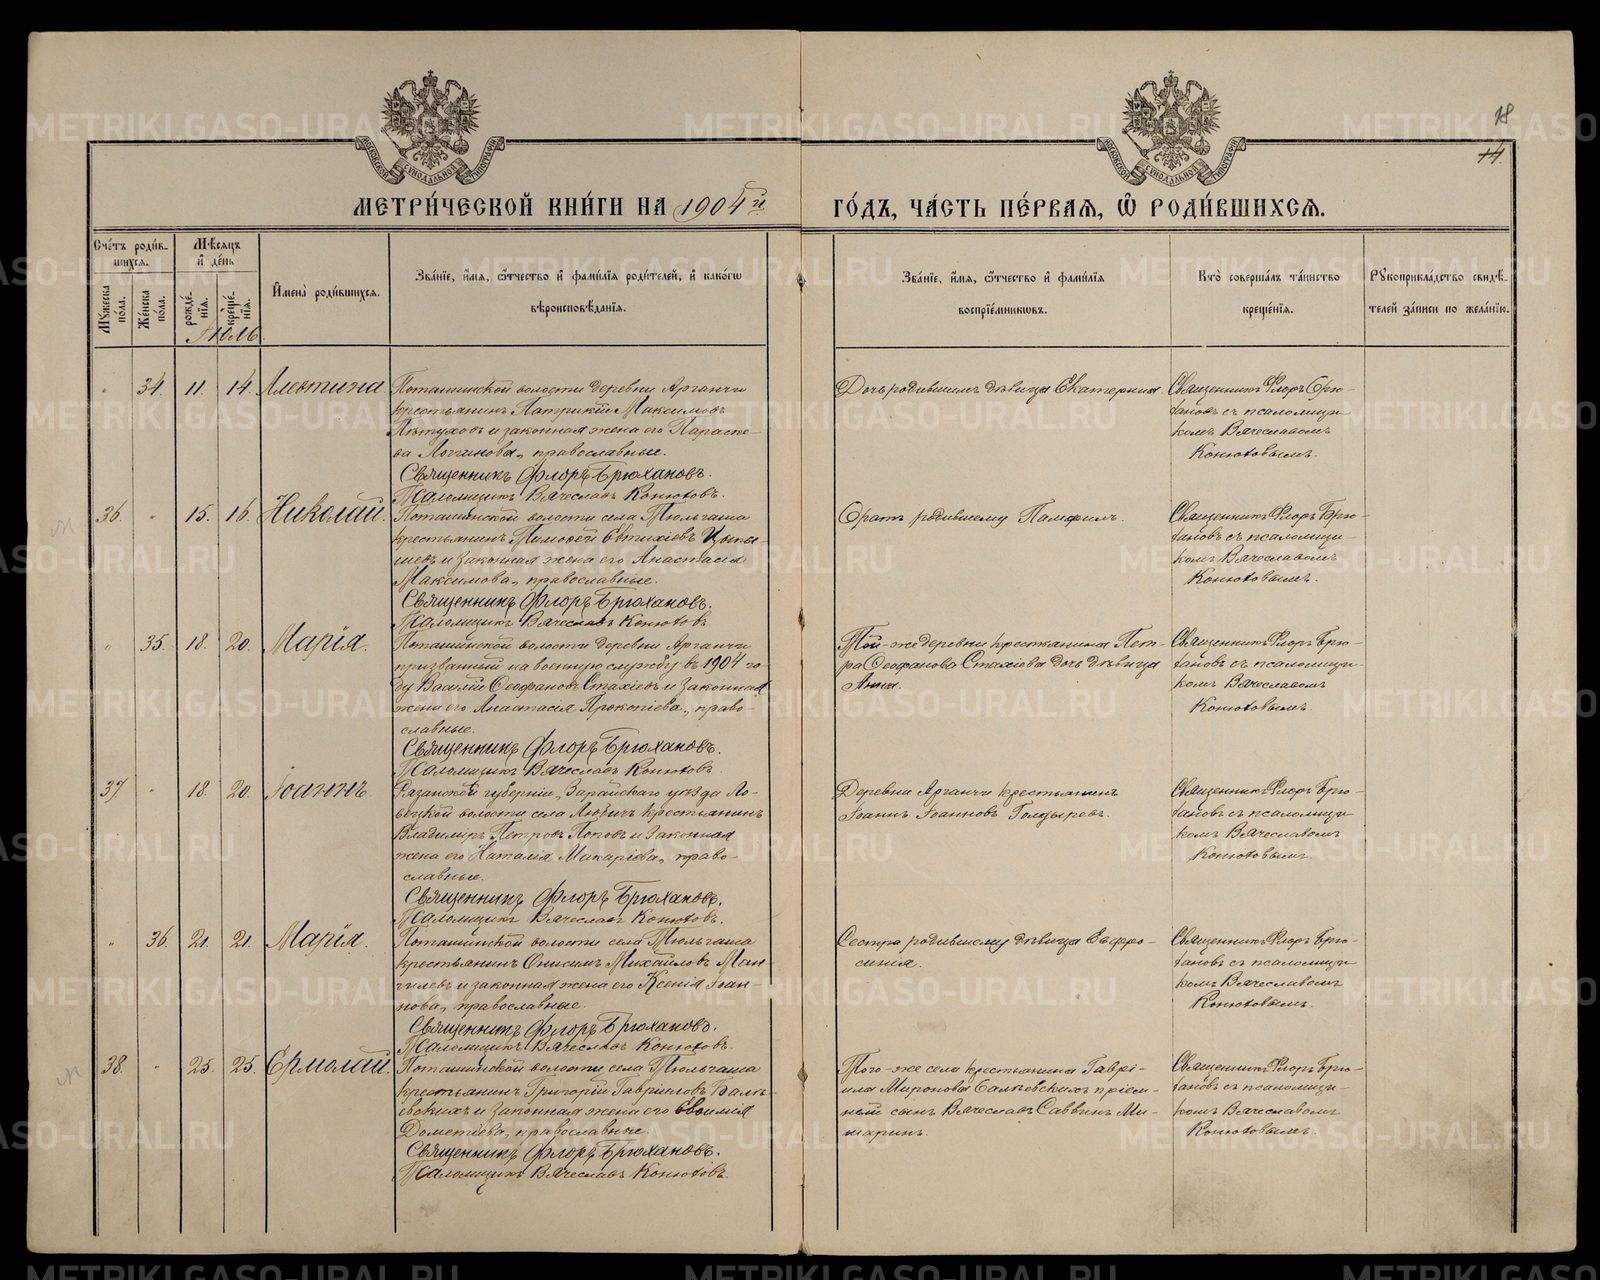 18
14.
МЕТРИ́ЧЕСКОЙ КНИ́ГИ НА 1904й ГО́ДЪ, ЧА́СТЬ ПЕ́РВАЯ, Ѽ РОДИ́ВШИХСЯ.
Сче́тъ роди́в-
шихся.
Мѣ́сяцъ
и҆ де́нь
Мꙋ́жеска по́ла.
Же́нска по́ла.
рожде́нїя.
креще́нїя.
Имена̀ роди́вшихся.
Зва́нїе, и҆́мя, ѻ҆́тчество и҆ фами́лїя роди́телей, и҆ како́гѡ
вѣроисповѣ́данїя.
Зва́нїе, и҆́мя, ѻ҆́тчество и҆ фами́лїя
воспрїе́мникѡвъ.
Кто̀ соверша́лъ та́инство
креще́нїя.
Рꙋкоприкла́дство свидѣ́-
телей за́писи по жела́нїю.
Іюль.
" 34. 11. 14. Алевтина
Поташинской волости деревни Арганчи
крестьянинъ Патрикій Максимовъ
Пѣтуховъ и законная жена его Параске-
ва Логинова, православные.
Священникъ Флоръ Брюхановъ.
Псаломщикъ Вячеславъ Конюховъ.
Дочь родившимъ дѣвица Екатерина.
Священникъ Флоръ Брю-
хановъ съ псаломщи-
комъ Вячеславомъ
Конюховымъ.
36. " 15. 16. Николай.
Поташинской волости села Тюльгаша
крестьянинъ Тимофей Евтихіевъ
и законная жена его Анастасія
Максимова, православные.
Священникъ Флоръ Брюхановъ.
Псаломщикъ Вячеславъ Конюховъ.
Братъ родившему Памфилъ.
Священникъ Флоръ Брю-
хановъ съ псаломщи-
комъ Вячеславомъ
Конюховымъ.
" 35. 18. 20. Марія.
Поташинской волости деревни Арганчи
призванный на военную службу въ 1904 го-
ду Василій Ѳеофановъ Стахіевъ и законная
жена его Анастасія Прокопіева, право-
славные.
Священникъ Флоръ Брюхановъ.
Псаломщикъ Вячеславъ Конюховъ.
Той-же деревни крестьянина Пет-
ра Ѳеофанова Стахіева дочь дѣвица
Анна.
Священникъ Флоръ Брю-
хановъ съ псаломщи-
комъ Вячеславомъ
Конюховымъ.
37 " 18. 20. Іоаннъ.
Рязанской губерніи, Зарайскаго уѣзда Ло-
вецкой волости села Любичъ крестьянинъ
Владимиръ Петровъ Поповъ и законная
жена его Наталія Макаріева, право-
славные.
Священникъ Флоръ Брюхановъ.
Псаломщикъ Вячеславъ Конюховъ.
Деревни Арганчи крестьянинъ
Іоаннъ Іоанновъ Голдыревъ.
Священникъ Флоръ Брю-
хановъ съ псаломщи-
комъ Вячеславомъ
Конюховымъ.
" 36. 21. 21. Марія.
Поташинской волости села Тюльгаша
крестьянинъ Онисимъ Михайловъ Ман-
гилевъ и законная жена его Ксенія Іоан-
нова, православные.
Священникъ Флоръ Брюхановъ.
Псаломщикъ Вячеславъ Конюховъ.
Сестра родившему дѣвица Евфро-
синія.
Священникъ Флоръ Брю-
хановъ съ псаломщи-
комъ Вячеславомъ
Конюховымъ.
38. " 25. 25. Ермолай.
Поташинской волости села Тюльгаша
крестьянинъ Григорій Гавріиловъ Балк-
евскихъ и законная жена его Евфимія
Дометіева, православные.
Священникъ Флоръ Брюхановъ.
Псаломщикъ Вячеславъ Конюховъ.
Того-же села крестьянина Гаврі-
ила Миронова Балкевскихъ пріем-
ный сынъ Вячеславъ Саввинъ Ми-
шаринъ.
Священникъ Флоръ Брю-
хановъ съ псаломщи-
комъ Вячеславомъ
Конюховымъ.
METRIKI.GASO-URAL.RU